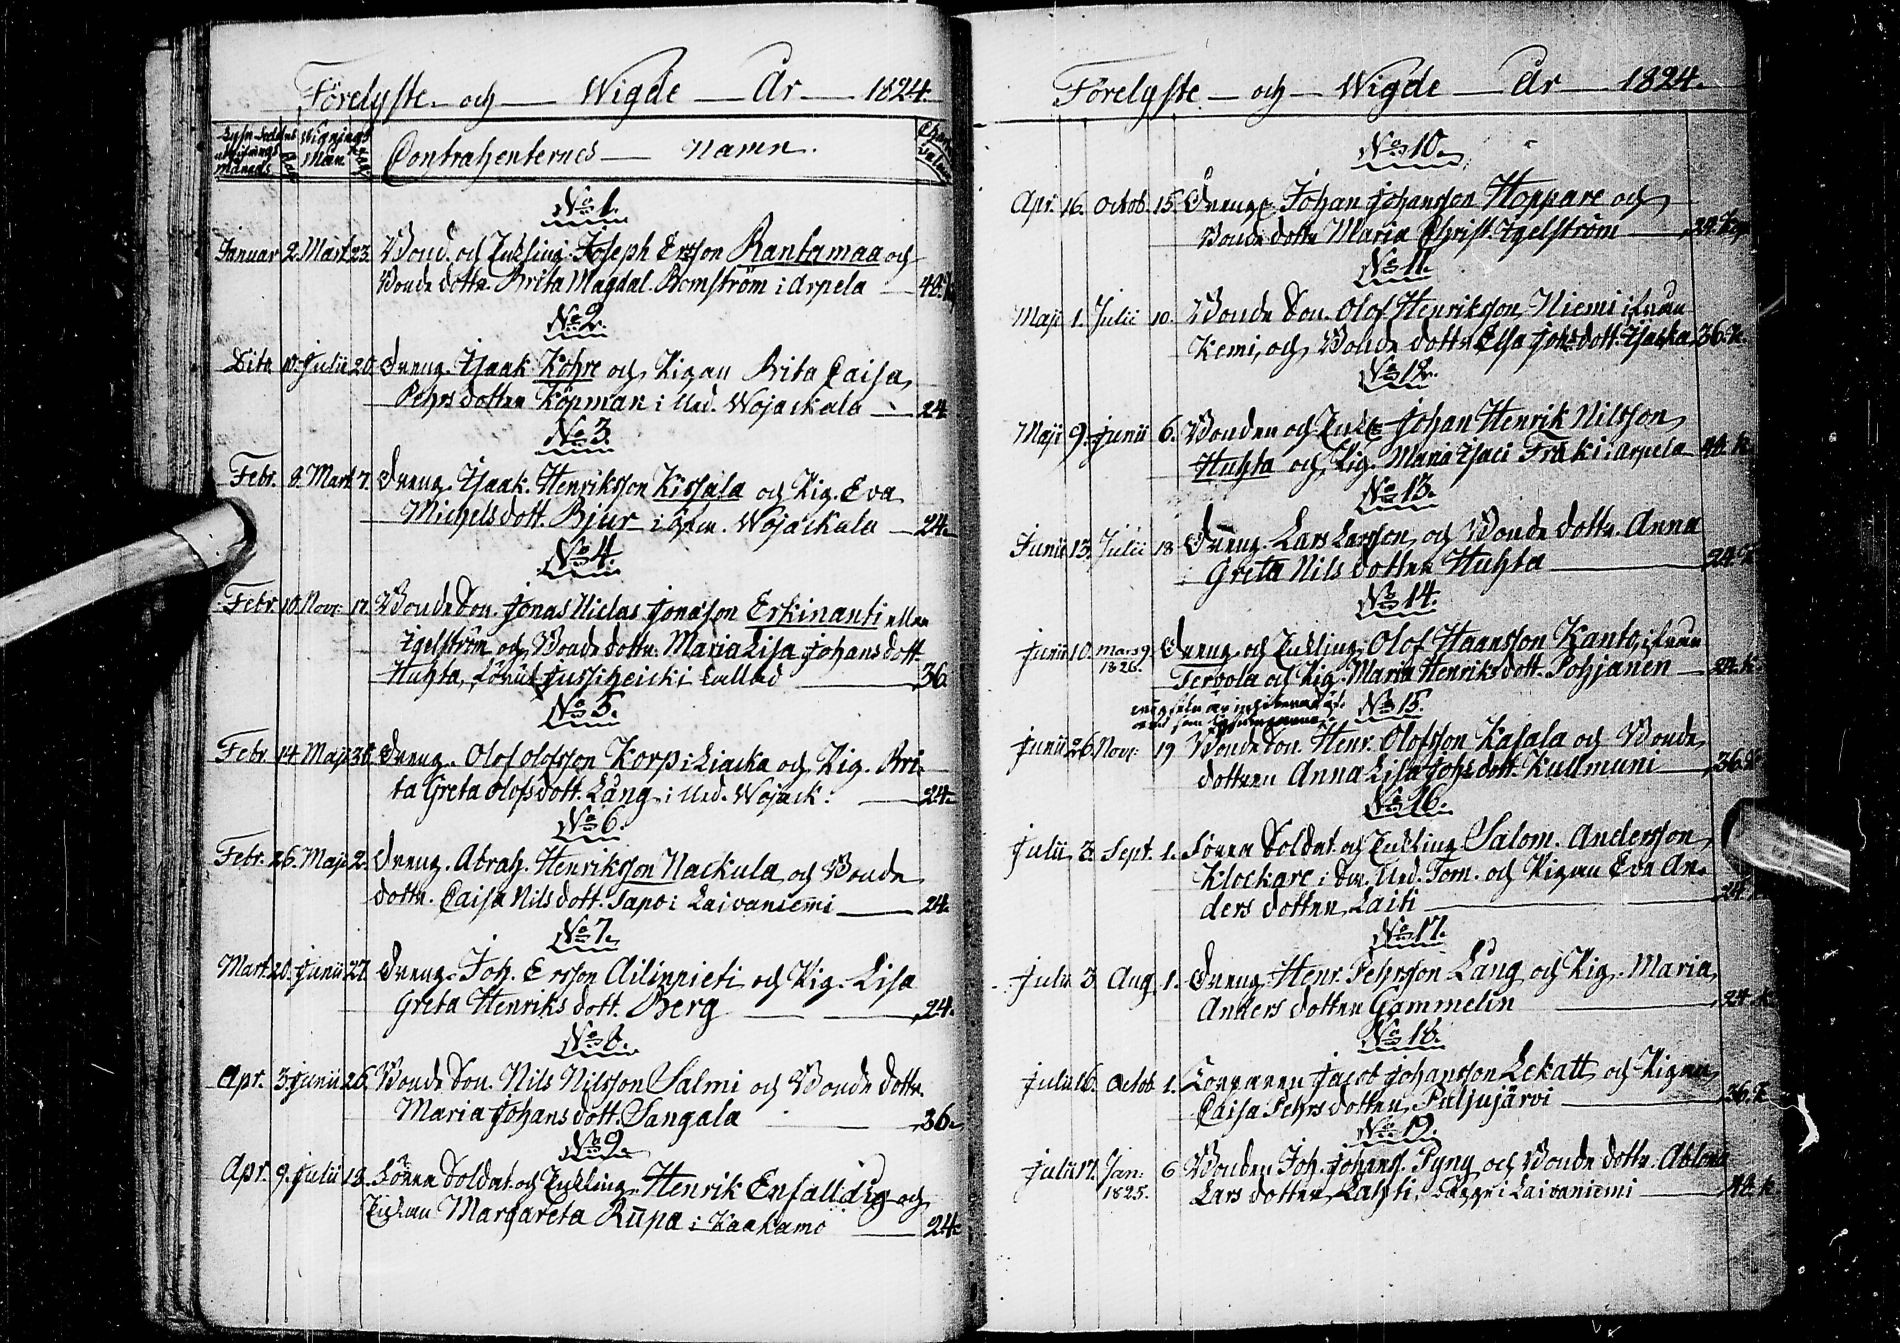 Förelyste och Wigde År 1824.
Lysn. Sedelns Wignings
Dag Män Dag Contrahenternes Namn.
Månads
No 1.
Januar 2. Mart. 23. Bond. och Enkling. Joseph Ersson Rantamaa och
Bonde dottr. Brita Magdal. Bomström i Arpela 48.
No 2.
Dito 10. Julii 20. Dreng. Isaak Köhre och Pigan Brita Caisa
Pehrs dotter Köpman i Ned. Wojackala 24
No 3.
Febr. 8. Mart. 7. Dreng. Isaak. Henriksson Kissala och Pig. Eva
Michels dott. Bjur i Öfw. Wojackala 24.
No 4.
Febr. 10. Novr. 17. Bonde Son. Jonas Niclas Jonasson Erkinanti eller
Igelström och Bonde dottr. Maria Lisa Johans dott.
Huhta, 36.
No 5.
Febr. 14. Maji 30. Dreng. Olof Olofsson Korp i Liacka och Pig. Bri-
ta Greta Olofs dott. Lång i Ned. Wojack: 24.
No 6.
Febr. 26. Maji 2. Dreng. Abrah. Henriksson Nackula och Bonde
dottr. Caisa Nils dott. Sapo i Laivaniemi 24.
No 7.
Mart. 20. Junii 27. Dreng. Joh. Ersson Ailinpieti och Pig. Lisa
Greta Henriks dott. Berg 24.
No 8.
Apr. 3. Junii 26. Bonde Son. Nils Nilsson Salmi och Bonde dottr.
Maria Johans dott. Sangala 36.
No 9.
Apr. 9. Julii 18. Förre Soldat och Enkling. Henrik Enfalldig och
Enkan Margareta Rupa i Kaakamo 24.
Förelyste och Wigde År 1824.
No 10.
Apr. 16. Octob. 15. Dreng. Johan Johansson Hoppare och
Bonde dottr Maria Christ. Igelström 24. Kop
No 11.
Maji 1. Julii 10. Bonde Son. Olof Henriksson Niemi ifrån
Kemi, och Bonde dottr Elsa Johs dott. Isacka 36. k.
No 12.
Maji 9. Junii 6. Bonden och Enkl. Johan Henrik Nilsson
Huhta och Pig. Maria Isaci Fräki i Arpela 48. k.
No 13.
Junii 13. Julii 18 Dreng. Lars Larsson och Bonde dottr. Anna
Greta Nils dotter Huhta 24. k
No 14.
Junii 10. Mars 9 Dreng och Enkling. Olof Haansson Kanto, ifrån
1826. Tervola och Pig. Maria Henriks dott. Pohjanen 24. k.
No 15.
Junii 26. Novr. 19 Bonde Son. Henr. Olofsson Kasala och Bonde
dottren Anna Lisa Johs dott. Kullmuni 36. k
No 16.
Julii 3. Sept. 1. Förre Soldat och Enkling Salom. Andersson
Klockare i Ned. Tom. och Pigan Eva An-
ders dotter Laiti 24.
No 17.
Julii 3 Aug. 1. Dreng. Henr. Pehrsson Lång och Pig. Maria
Anders dotter Gammelin 24. k
No 18.
Julii 16. Octob. 1. Jacob Johansson Lekatt och Pigan
Caisa Pehrs dotter Puljujärvi 36. k
No 19.
Julii 17. Jan: 6 Bonden Joh. Johans. Pyny och Bonde dottr.
1825. Lars dotter Lahti, i Laivaniemi 48. k.